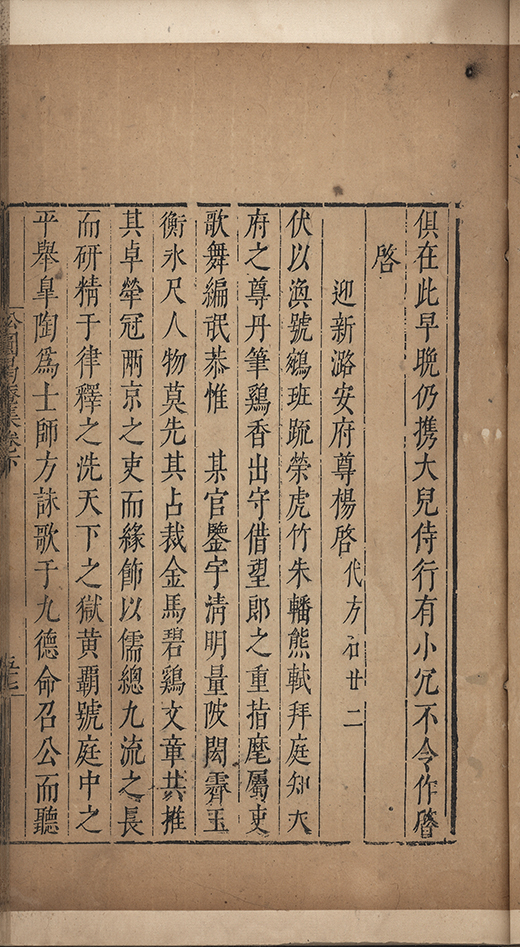 俱在此早晚仍携大兒侍行有小冗不令作
啓
迎新潞安府尊楊啓 代方廿二
伏以渙號鵷班䟽榮虎竹朱轓熊軾拜庭知大
府之尊丹筆鷄香出守借望郎之重指麾屬吏
歌舞編氓恭惟 某官鑒宇清明量陂閎霽玉
衡氷尺人物莫先其占裁金馬碧鷄文章共推
其卓犖冠兩京之吏而緣飾以儒總九流之長
而研精于律釋之洗天下之獄黄覇號庭中之
平舉臯陶爲士師方詠歌于九德命召公而聽
松圓偈庵集卷下